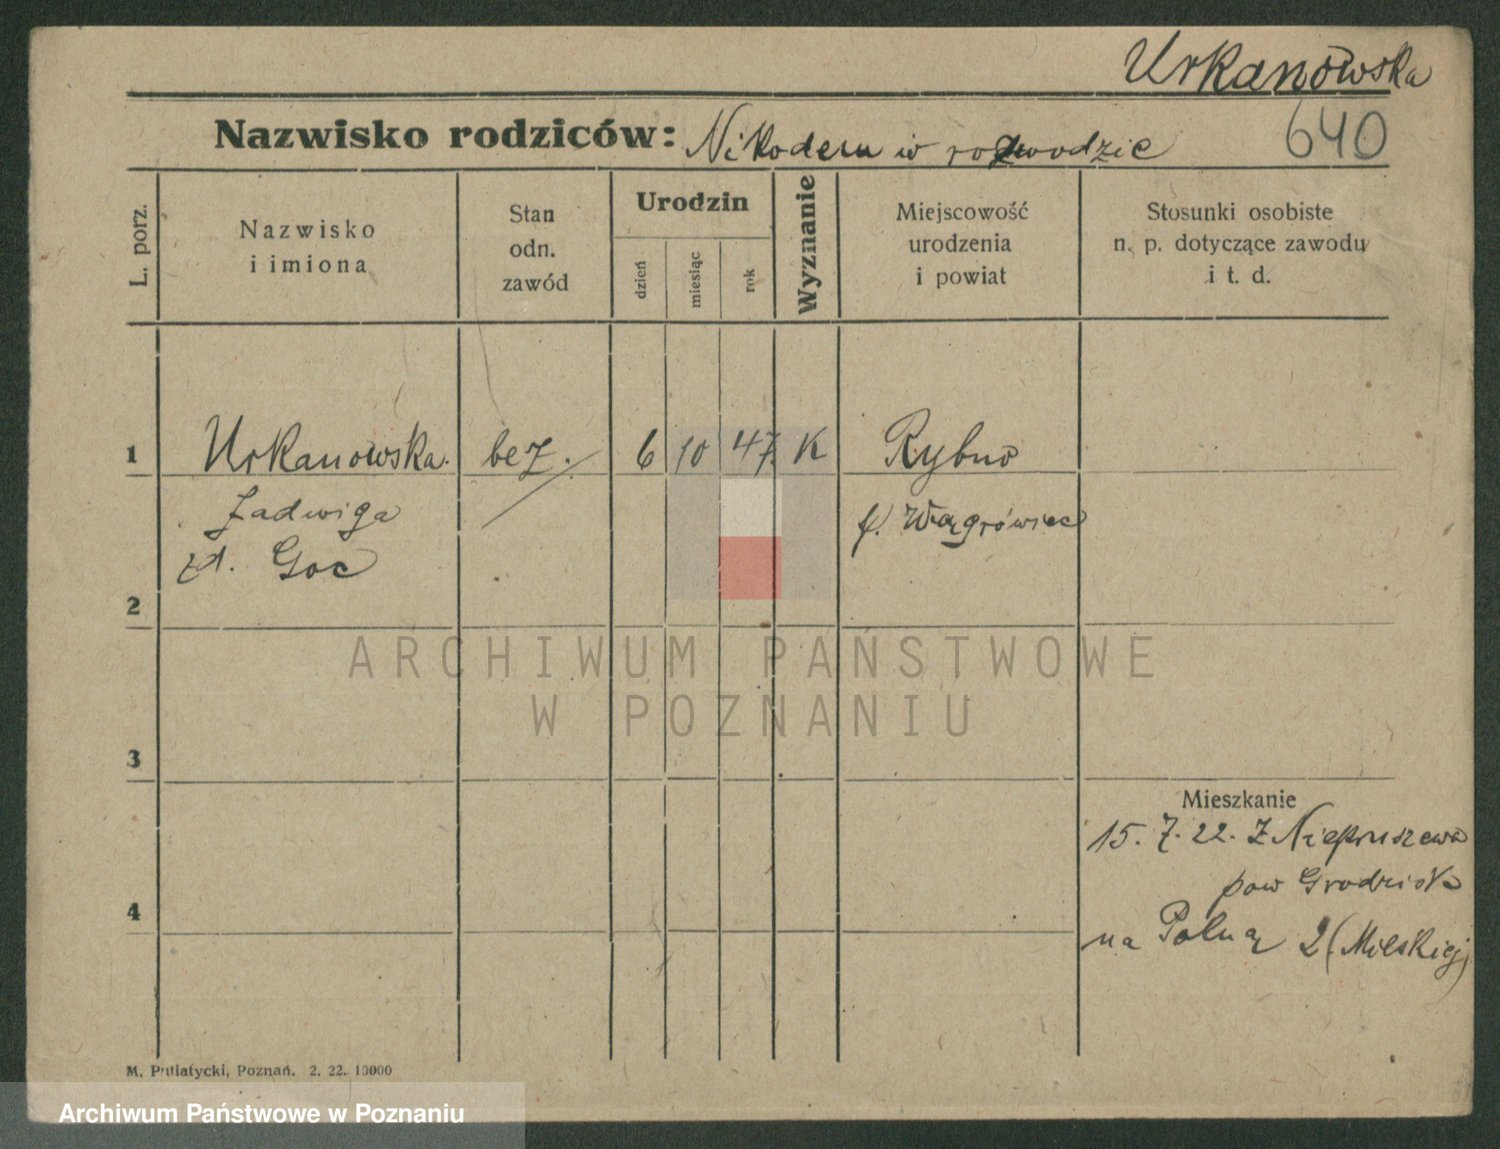 Urkanowska
640
Nazwisko rodziców: Nikodem w rozwodzie
L. porz.
Nazwisko
i imiona
Stan
odn.
zawód
Urodzin
dzień
miesiąc
rok
Wyznanie
Miejscowość
urodzenia
i powiat
Stosunki osobiste
n. p. dotyczące zawodu
i t. d.
1 Urkanowska. bez. 6 10 47. K Rybno
Jadwiga p. Wągrówiec
zd. Goc
2
ARCHIWUM PAŃSTWOWE
W POZNANIU
3
Mieszkanie
15. 7. 22. Z Niepruszewa
pow Grodzisk
4
na Polną 2 (Milskiej)
M. Putiatycki, Poznań. 2. 22. 10000
Archiwum Państwowe w Poznaniu